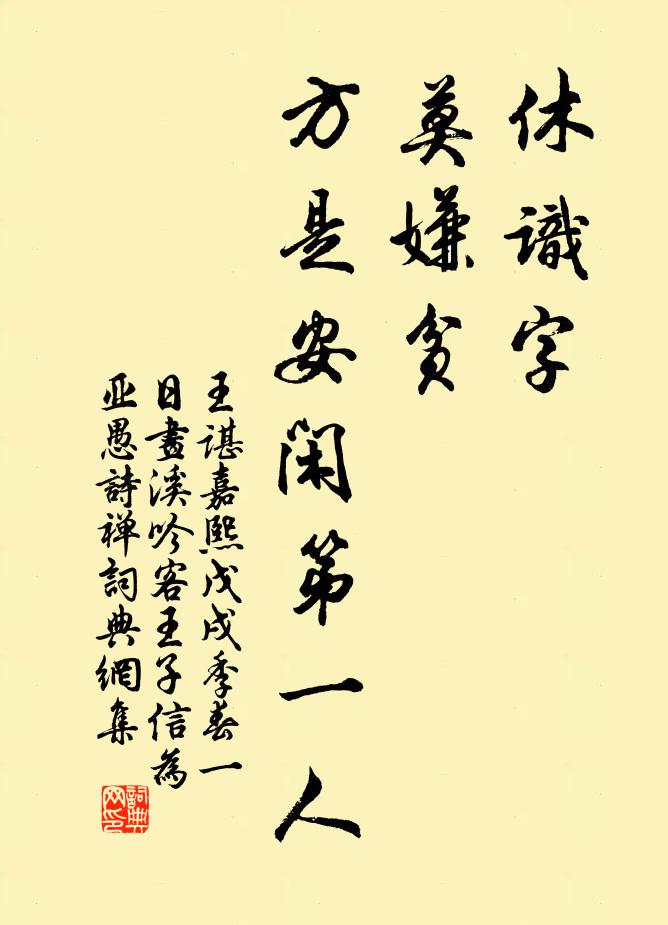 休識字
莫嫌貧
方是安閑第一人
王諶嘉熙戊戌季春一
日畫溪吟客王子信為
亚愚詩禅詞典網集
詞典
网印